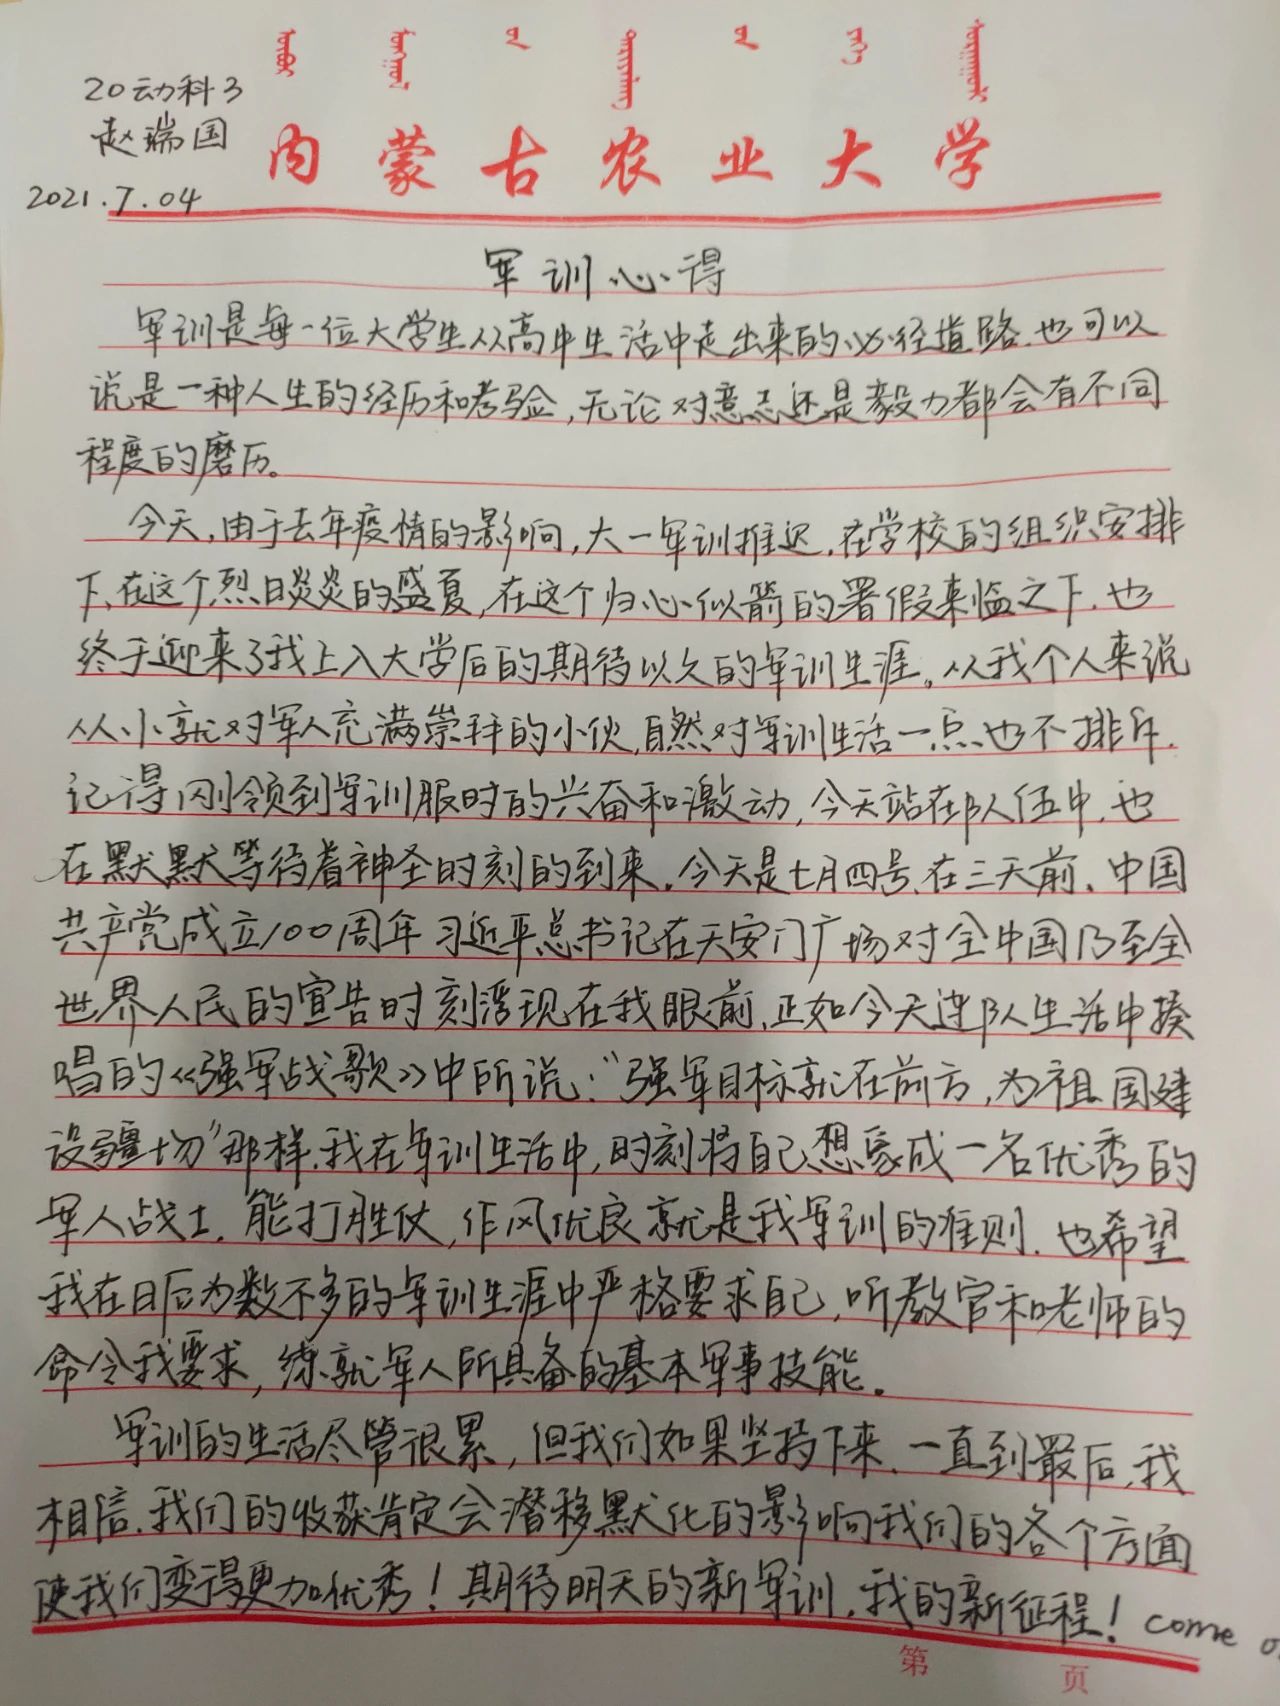 20动科3
赵瑞国
2021.7.04
内蒙古农业大学
军训心得
军训是每一位大学生从高中生活中走出来的必经道路.也可以
说是一种人生的经历和考验,无论对意志还是毅力都会有不同
程度的磨历。
今天,由于去年疫情的影响,大一军训推迟.在学校的组织安排
下,在这个烈日炎炎的盛夏,在这个归心似箭的署假来临之下.也
终于迎来了我上入大学后的期待以久的军训生涯。从我个人来说
从小就对军人充满崇拜的小伙,自然对军训生活一点也不排斥.
记得刚领到军训服时的兴奋和激动,今天站在队伍中.也
在默默等待着神圣时刻的到来.今天是七月四号,在三天前.中国
共产党成立100周年习近平总书记在天安门广场对全中国乃至全
世界人民的宣告时刻浮现在我眼前.正如今天连队生活中揍
唱的《强军战歌》中所说:"强军目标就在前方,为祖国建
设疆场"那样.我在军训生活中,时刻将自己想象成一名优秀的
军人战士.能打胜仗,作风优良就是我军训的准则.也希望
我在日后为数不多的军训生涯中严格要求自己,听教官和老师的
命令我要求,练就军人所具备的基本军事技能.
军训的生活尽管很累,但我们如果坚持下来.一直到最后,我
相信.我们的收获肯定会潜移默化的影响我们的各个方面
使我们变得更加优秀!期待明天的新军训.我的新征程!come
第 页